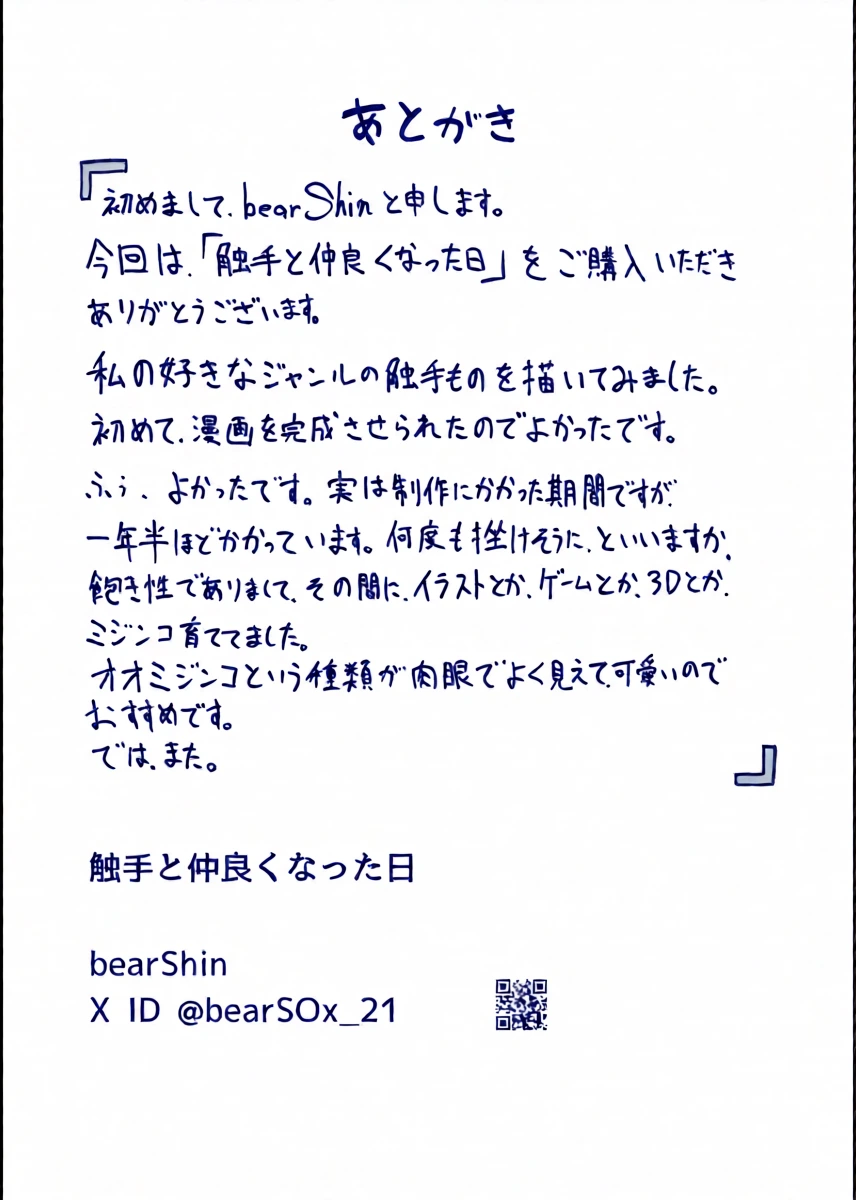 あとがき
初めまして、bearShinと申します。
今回は、「触手と仲良くなった日」をご購入いただき
ありがとうございます。
私の好きなジャンルの触手ものを描いてみました。
初めて、漫画を完成させられたのでよかったです。
ふぅ、よかったです。実は制作にかかった期間ですが、
一年半ほどかかっています。何度も挫けそうに、といいますか、
飽き性でありまして、その間に、イラストとか、ゲームとか、3Dとか、
ミジンコ育ててました。
オオミジンコという種類が肉眼でよく見えて、可愛いので
おすすめです。
では、また。
触手と仲良くなった日
bearShin
X ID @bearSOx_21